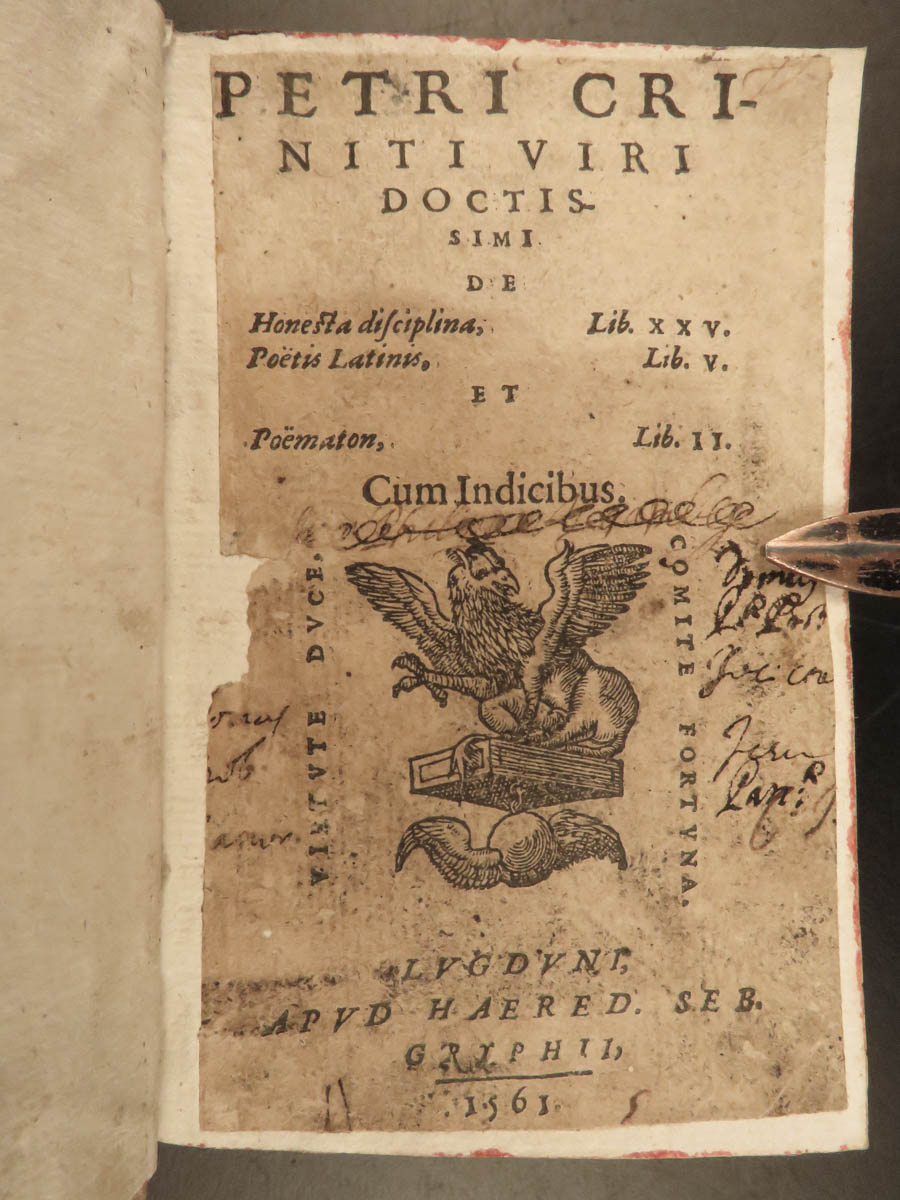 PETRI CRI-
NITI VIRI
DOCTIS-
SIMI
DE
Honesta diſciplina, Lib. XXV.
Poëtis Latinis, Lib. V.
ET
Poëmaton, Lib. II.
Cum Indicibus.
VIRTVTE DVCE,
COMITE FORTVNA.
LVGDVNI,
APVD HAERED. SEB.
GRYPHII,
1561.